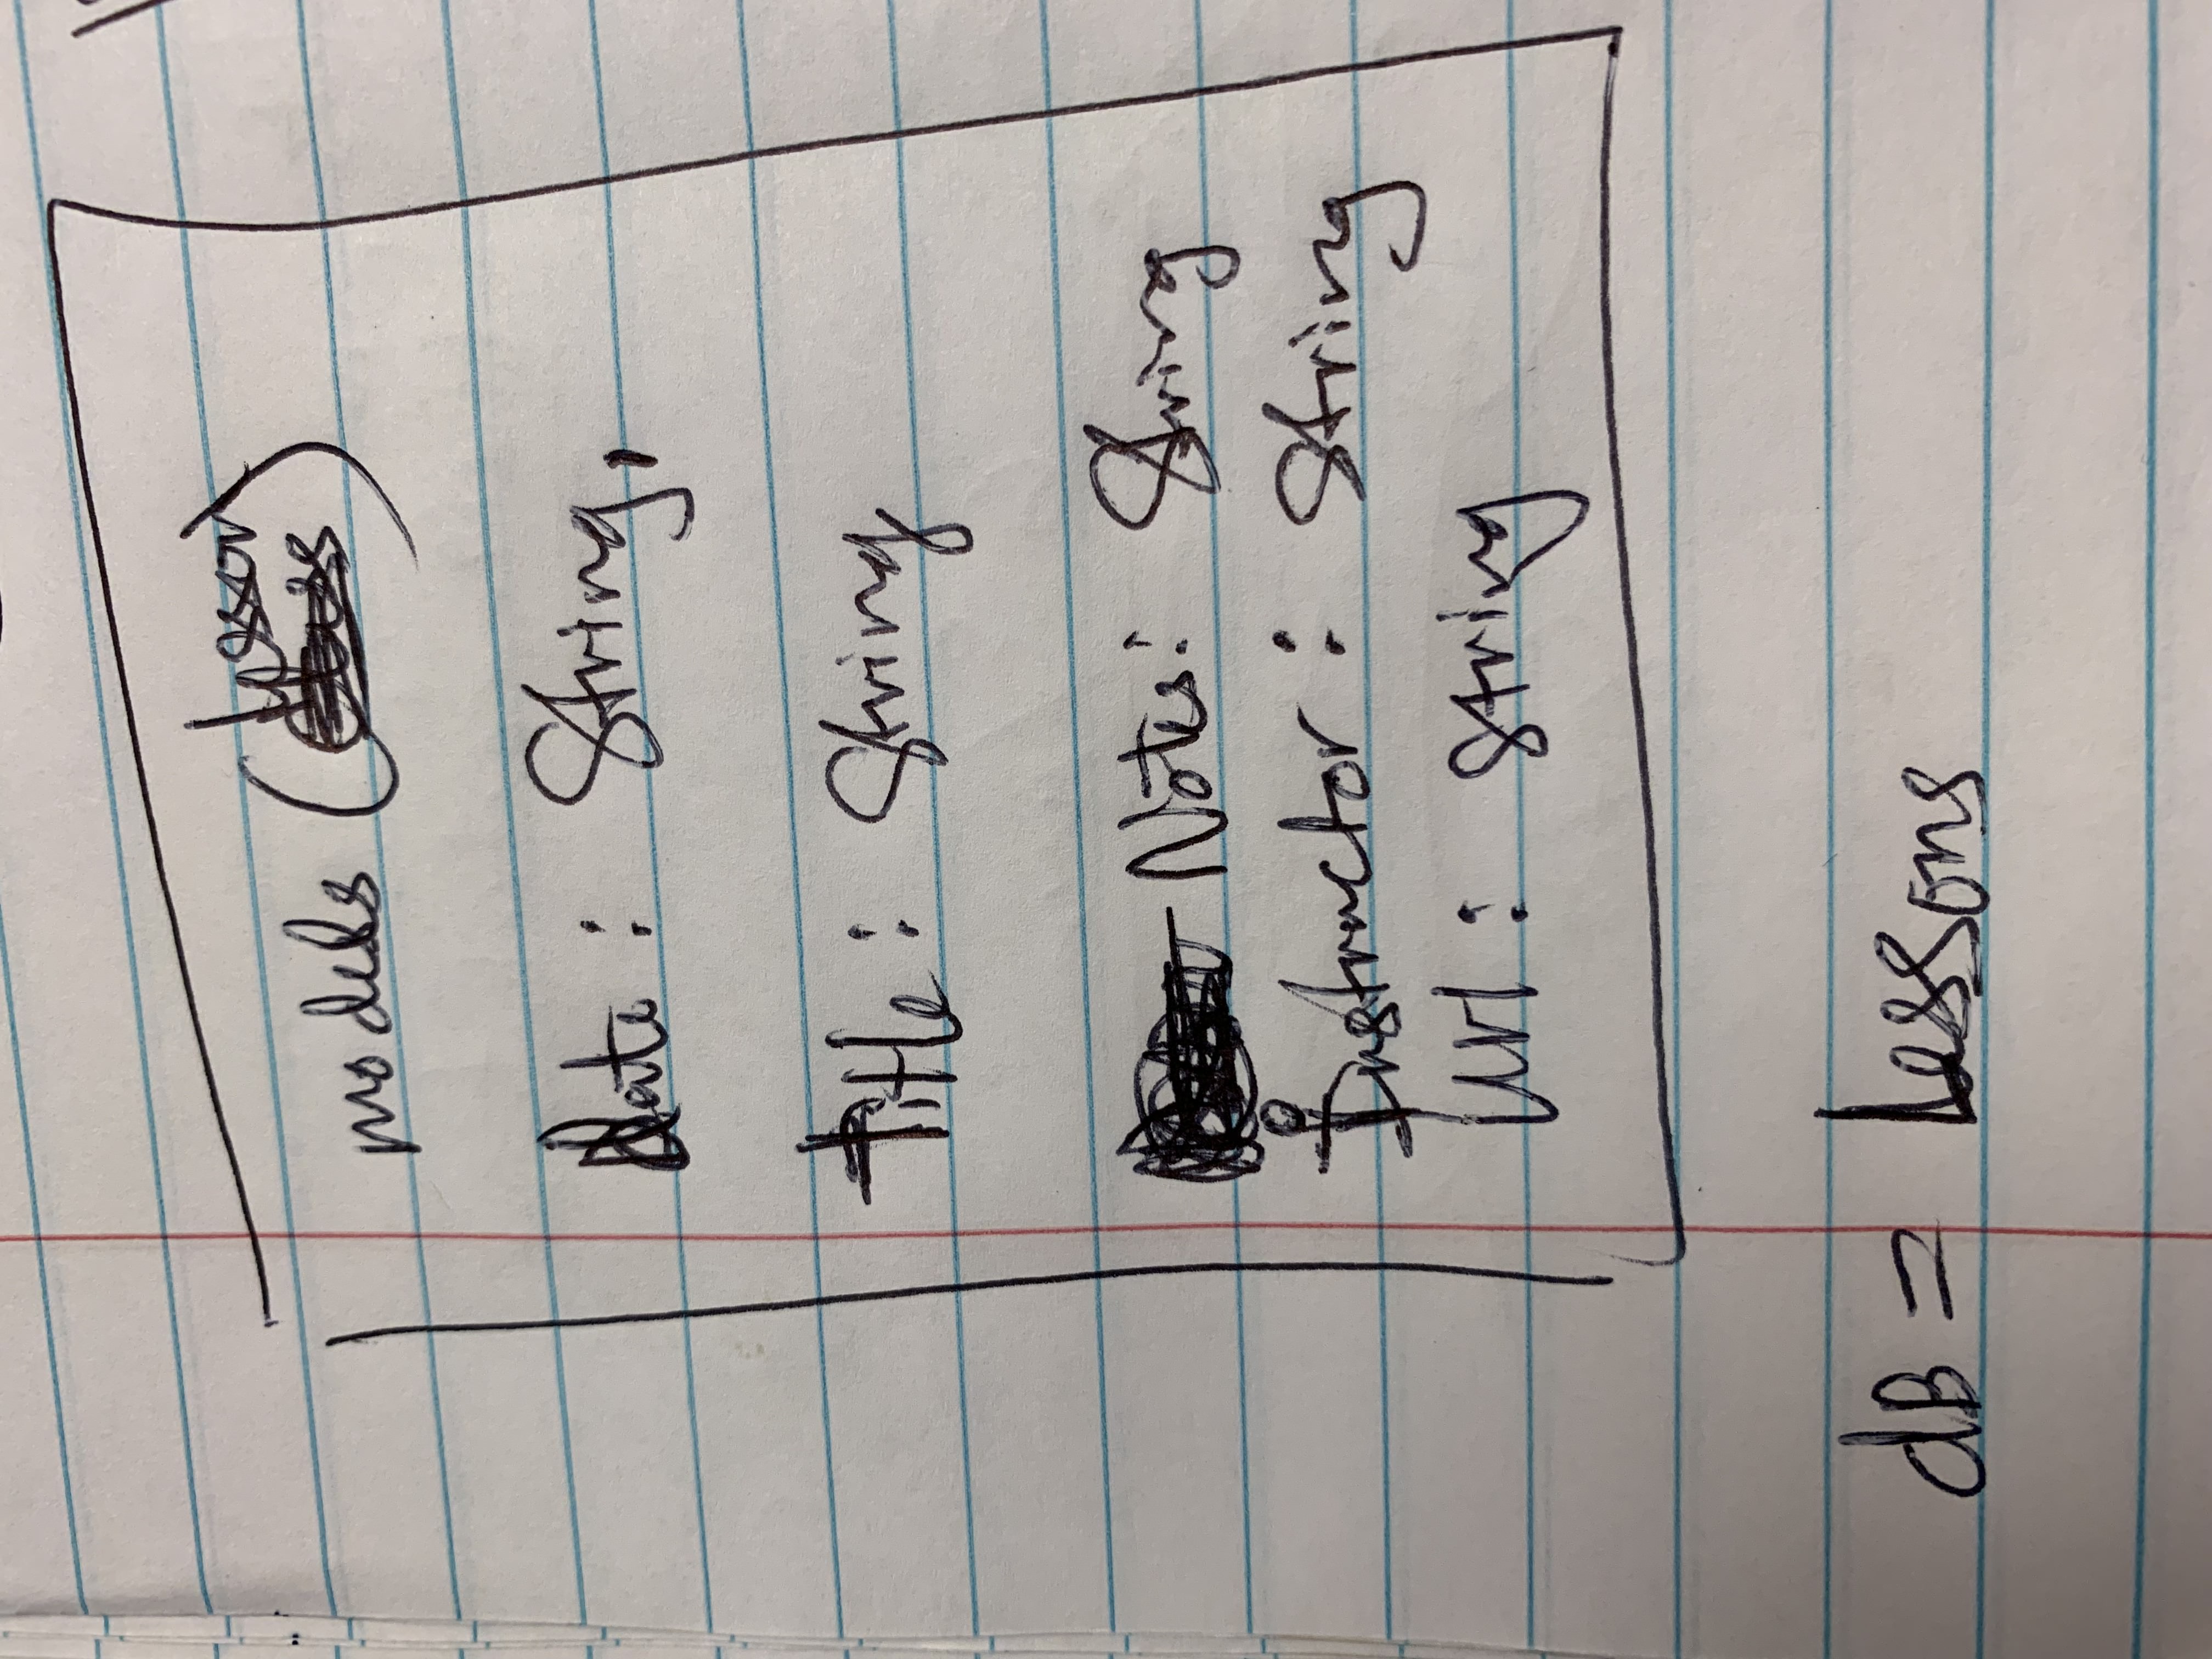 models (lesson)
date : String,
title : String
Notes: String
instructor : String
url : string
dB = Lessons